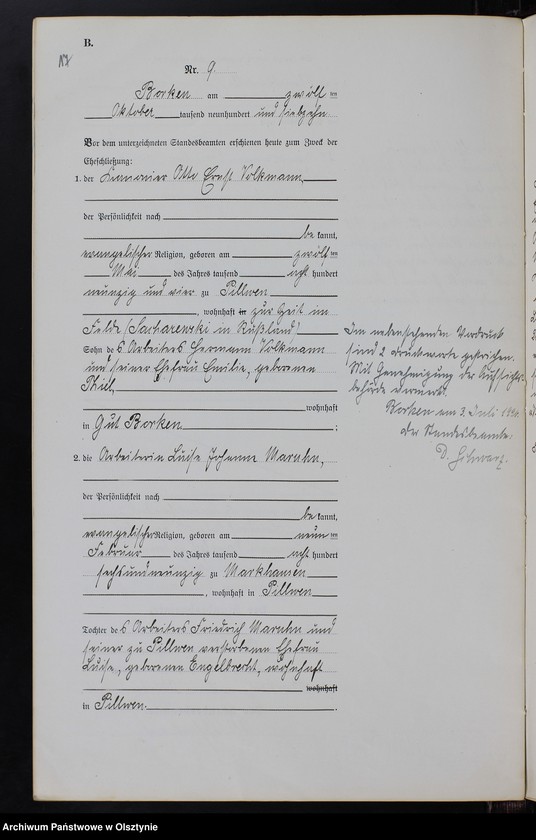 B.
Nr. 9.
Borken am zwölf ten
Oktober tausend neunhundert und siebzehn
Vor dem unterzeichneten Standesbeamten erschienen heute zum Zweck der
Eheschließung:
1. der Kanonier Otto Ernst Volkmann,
der Persönlichkeit nach
be kannt,
evangelischer Religion, geboren am zwölf ten
Mai des Jahres tausend acht hundert
neunzig und vier zu Pillwen
, wohnhaft in zur Zeit im
Felde (Sacharewski in Rußland)
Sohn des Arbeiters Hermann Volkmann
und seiner Ehefrau Emilie, geborenen
Thiel,
wohnhaft
in Gut Borken ;
2. die Arbeiterin Luise Johanne Maruhn,
der Persönlichkeit nach
be kannt,
evangelischer Religion, geboren am neun ten
Februar des Jahres tausend acht hundert
sechsundneunzig zu Markhausen
, wohnhaft in Pillwen
Tochter des Arbeiters Friedrich Maruhn und
seiner zu Pillwen verstorbenen Ehefrau
Luise, geborenen Engelbrecht, wohnhaft
wohnhaft
in Pillwen.
Im nebenstehenden Vordruck
sind 2 Druckworte gestrichen.
Mit Genehmigung der Aufsichts-
behörde vermerkt.
Borken am 3. Juli
Der Standesbeamte.
D. Schwarz.
Archiwum Państwowe w Olsztynie